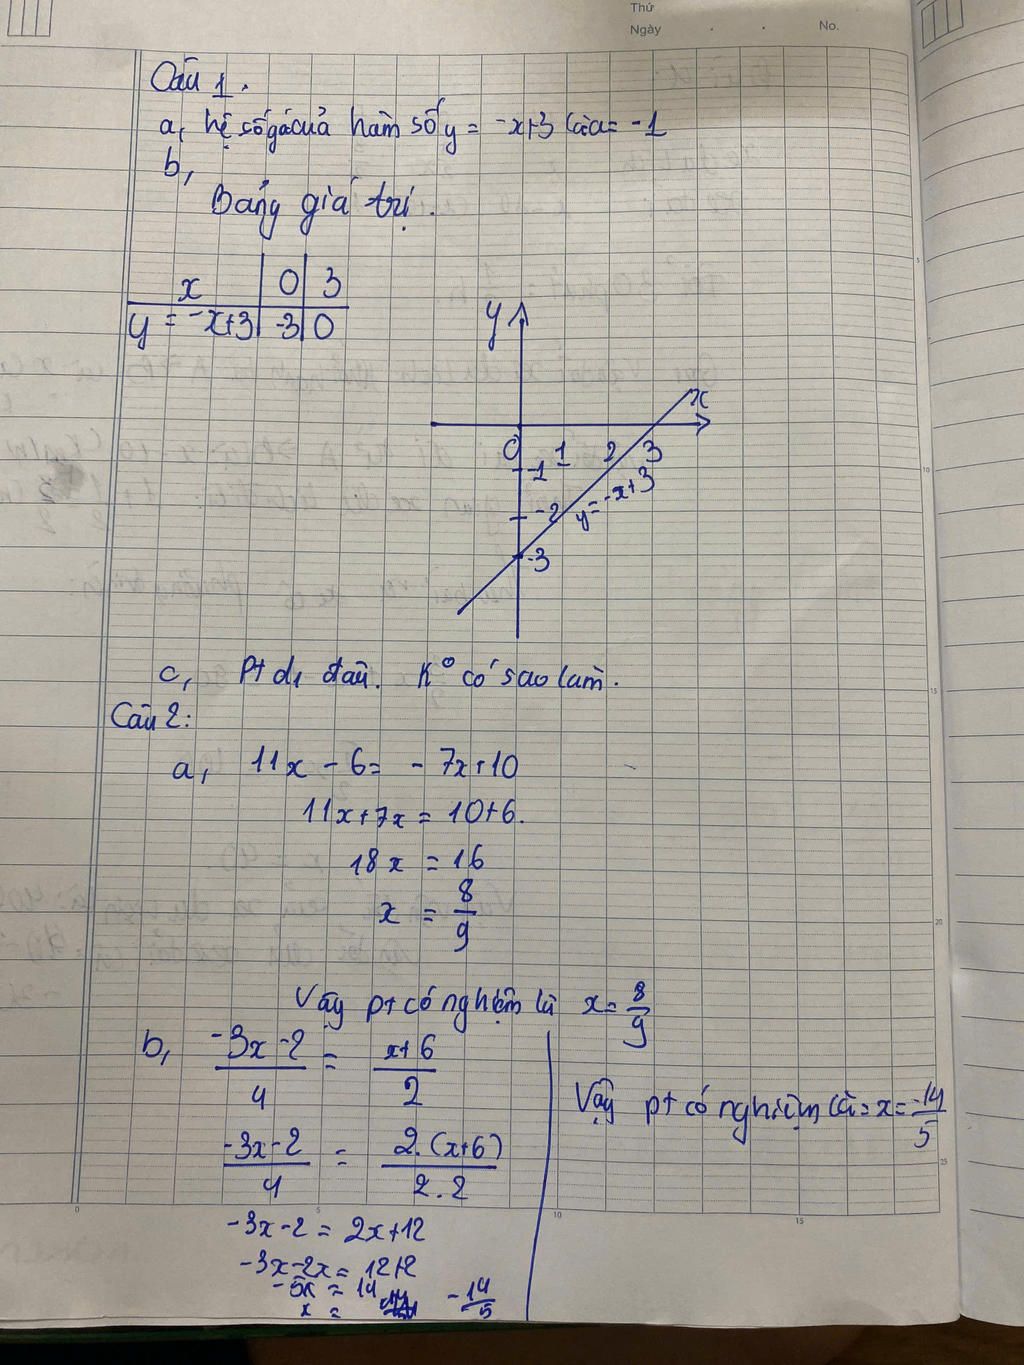 Thứ
Ngày . . No.
Câu 1.
a, hệ số góc của hàm số y = -x+3 là a = -1
b,
Bảng giá trị.
x 0 3
y = -x+3 -3 0
y
x
0 1 2 3
-1
-2
y = -x+3
-3
c, Pt d1 đâu. K° có sao làm.
Câu 2:
a, 11x - 6 = - 7x+10
11x+7x = 10+6.
18x = 16
x = 8/9
Vậy pt có nghiệm là x = 8/9
b, (-3x-2)/4 = (x+6)/2
(-3x-2)/4 = (2.(x+6))/(2.2)
-3x-2 = 2x+12
-3x-2x = 12+2
-5x = 14
x = -14/5
Vậy pt có nghiệm là: x = -14/5
5
10
15
20
25
0
5
10
15